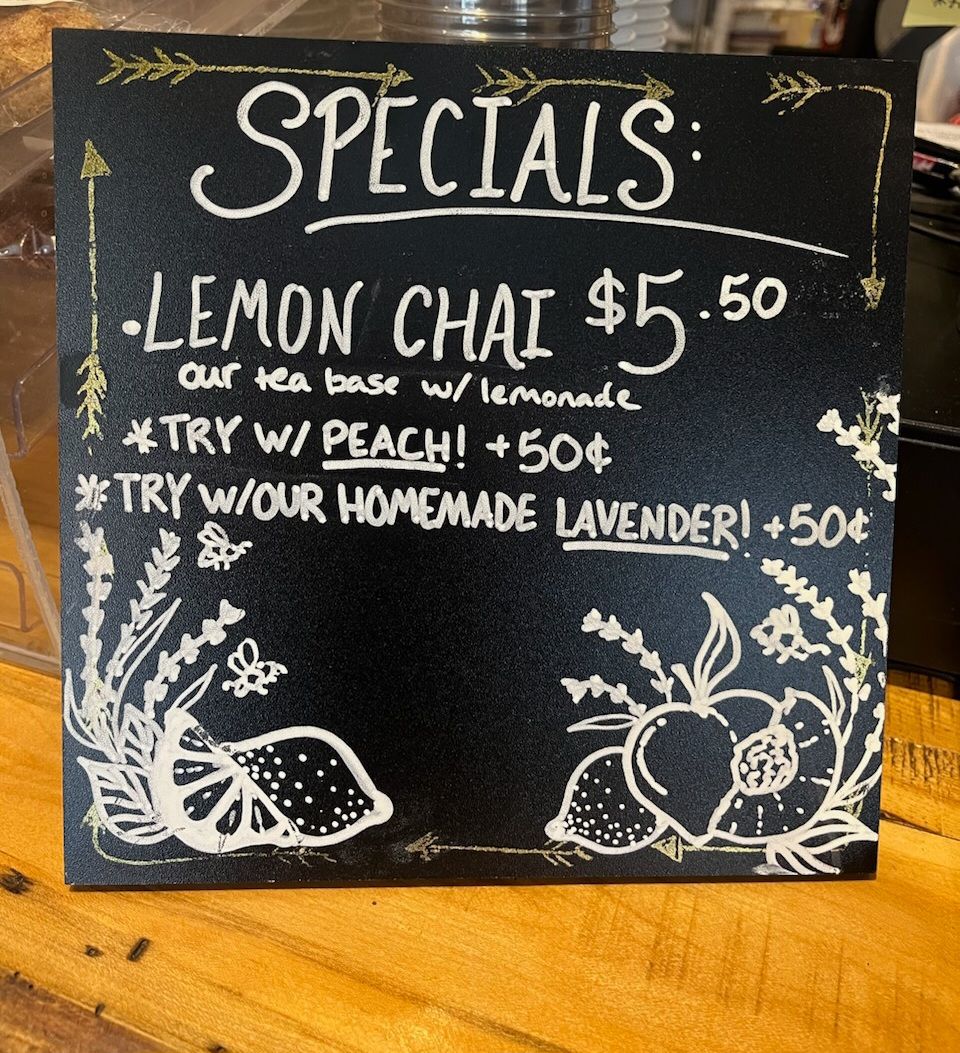 SPECIALS:
•LEMON CHAI $5.50
our tea base w/ lemonade
*TRY W/ PEACH! +50¢
*TRY W/OUR HOMEMADE LAVENDER! +50¢